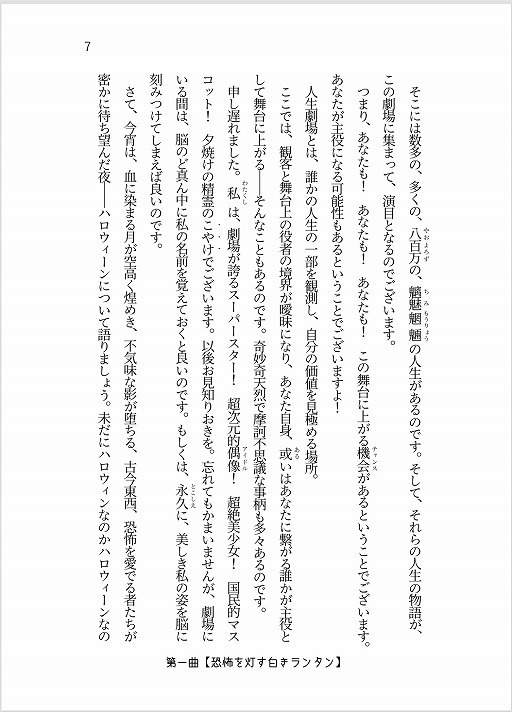 7
そこには数多の、多くの、八百万の、魑魅魍魎の人生があるのです。そして、それらの人生の物語が、
この劇場に集まって、演目となるのでございます。
つまり、あなたも！　あなたも！　あなたも！　この舞台に上がる機会があるということでございます。
あなたが主役になる可能性もあるということでございますよ！
人生劇場とは、誰かの人生の一部を観測し、自分の価値を見極める場所。
ここでは、観客と舞台上の役者の境界が曖昧になり、あなた自身、或いはあなたに繋がる誰かが主役と
して舞台に上がる――そんなこともあるのです。奇妙奇天烈で摩訶不思議な事柄も多々あるのです。
申し遅れました。私は、劇場が誇るスーパースター！　超次元的偶像！　超絶美少女！　国民的マス
コット！　夕焼けの精霊のこやけでございます。以後お見知りおきを。忘れてもかまいませんが、劇場に
いる間は、脳のど真ん中に私の名前を覚えておくと良いのです。もしくは、永久に、美しき私の姿を脳に
刻みつけてしまえば良いのです。
さて、今宵は、血に染まる月が空高く煌めき、不気味な影が堕ちる、古今東西、恐怖を愛でる者たちが
密かに待ち望んだ夜――ハロウィーンについて語りましょう。未だにハロウィンなのかハロウィーンなの
第一曲【恐怖を灯す白きランタン】